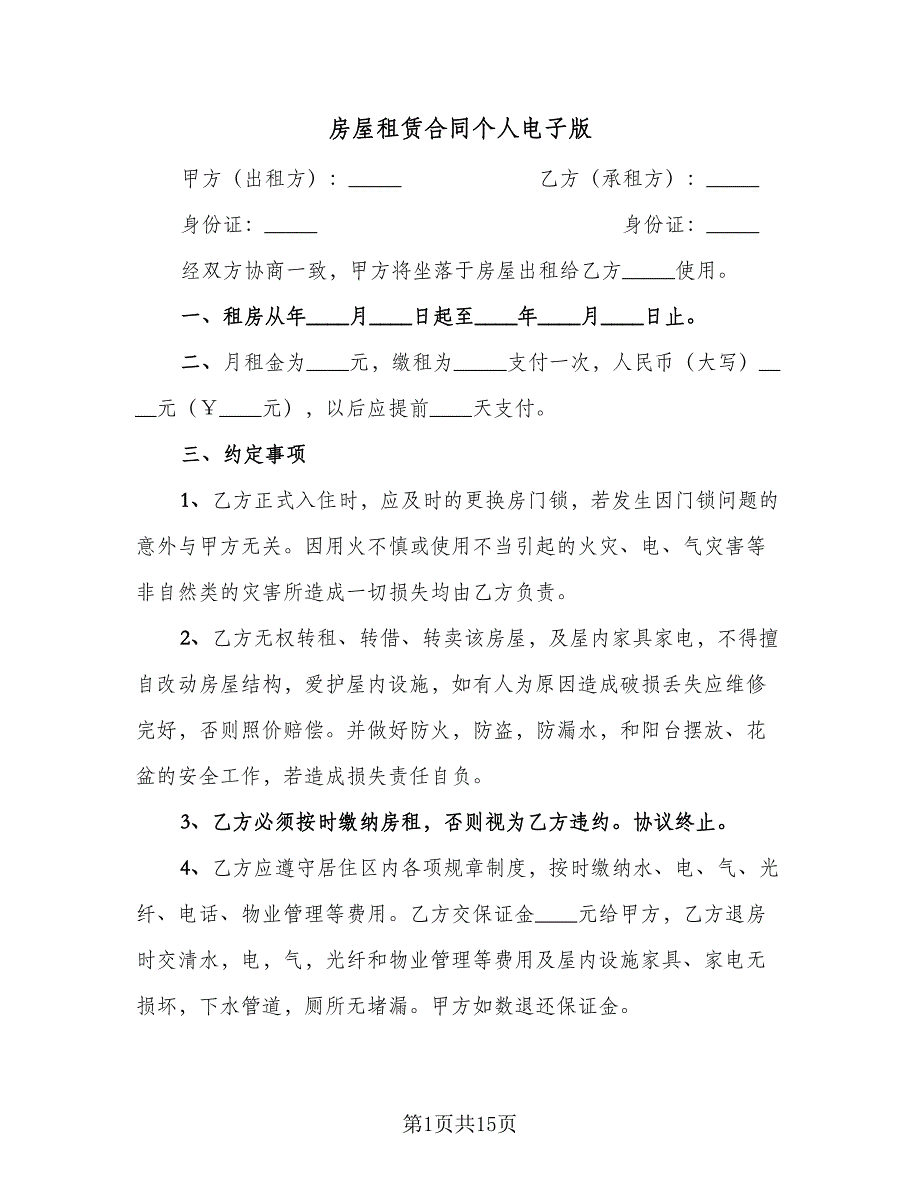 房屋租赁合同个人电子版
甲方（出租方）：_____ 乙方（承租方）：_____
身份证：_____ 身份证：_____
经双方协商一致，甲方将坐落于房屋出租给乙方_____使用。
一、租房从年____月____日起至____年____月____日止。
二、月租金为____元，缴租为_____支付一次，人民币（大写）__
__元（￥____元），以后应提前____天支付。
三、约定事项
1、乙方正式入住时，应及时的更换房门锁，若发生因门锁问题的
意外与甲方无关。因用火不慎或使用不当引起的火灾、电、气灾害等
非自然类的灾害所造成一切损失均由乙方负责。
2、乙方无权转租、转借、转卖该房屋，及屋内家具家电，不得擅
自改动房屋结构，爱护屋内设施，如有人为原因造成破损丢失应维修
完好，否则照价赔偿。并做好防火，防盗，防漏水，和阳台摆放、花
盆的安全工作，若造成损失责任自负。
3、乙方必须按时缴纳房租，否则视为乙方违约。协议终止。
4、乙方应遵守居住区内各项规章制度，按时缴纳水、电、气、光
纤、电话、物业管理等费用。乙方交保证金____元给甲方，乙方退房
时交清水，电，气，光纤和物业管理等费用及屋内设施家具、家电无
损坏，下水管道，厕所无堵漏。甲方如数退还保证金。
第1页共15页